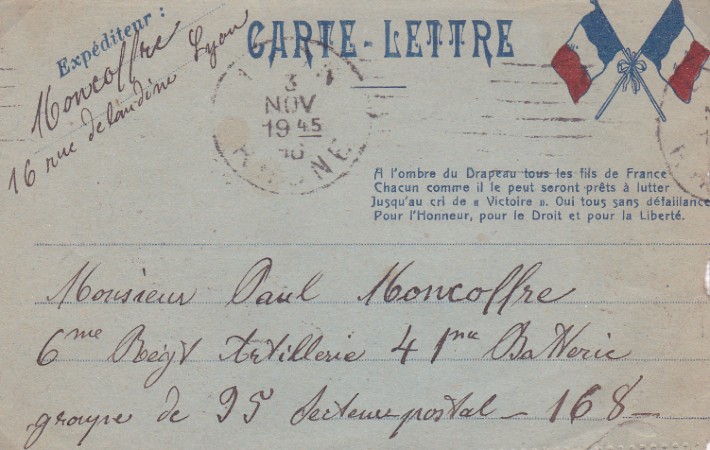 Expéditeur :
Moncoffre
16 rue delandine Lyon
CARTE-LETTRE
3
NOV
19 45
16
RHONE
A l'ombre du Drapeau tous les fils de France
Chacun comme il le peut seront prêts à lutter
Jusqu'au cri de « Victoire ». Oui tous sans défaillance
Pour l'Honneur, pour le Droit et pour la Liberté.
Monsieur Paul Moncoffre
6me Régt Artillerie 41me Batterie
groupe de 95 Secteur postal - 168 -